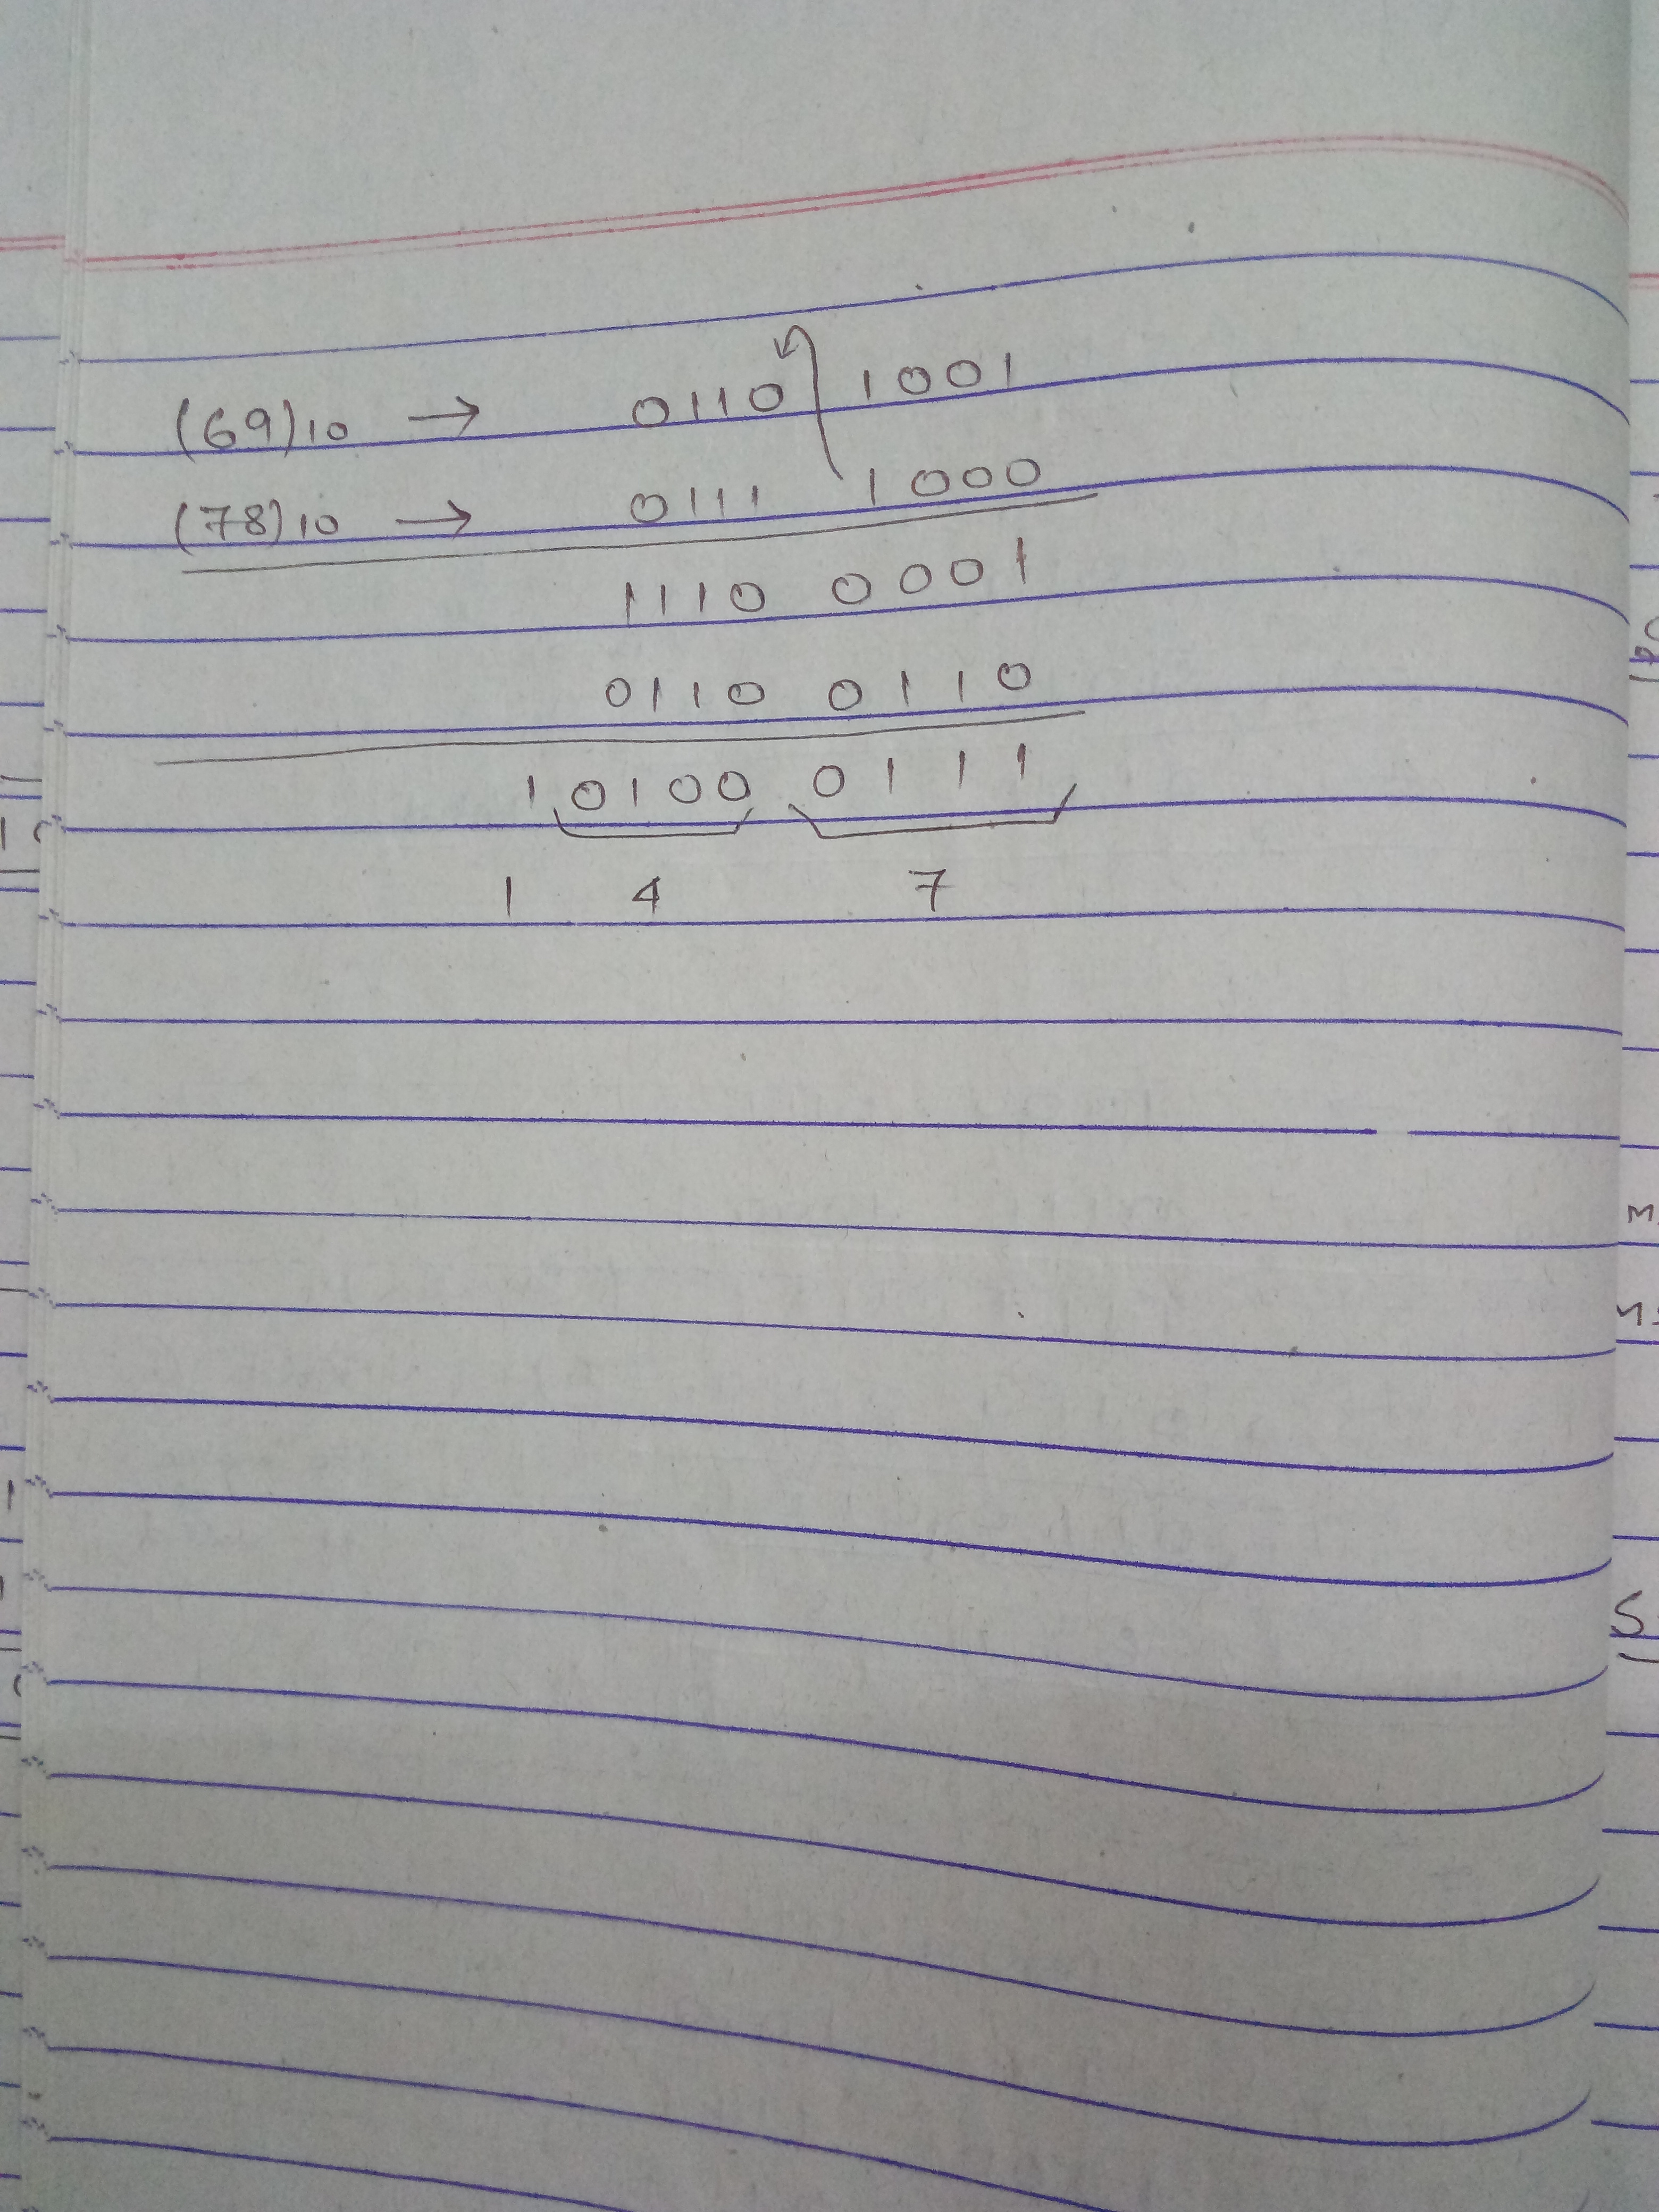 (69)10 → 0110 1001
(78)10 → 0111 1000
1110 0001
0110 0110
1 0100 0111
1 4 7